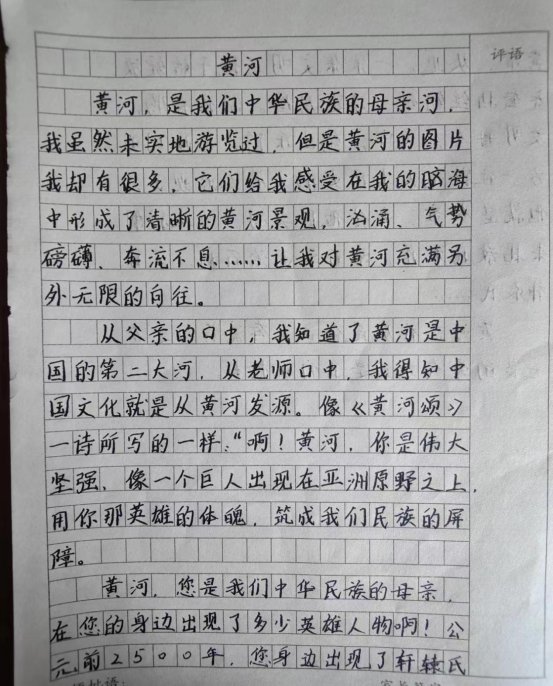 评语
黄河
黄河，是我们中华民族的母亲河，
我虽然未实地游览过，但是黄河的图片
我却有很多，它们给我感受在我的脑海
中形成了清晰的黄河景观，汹涌、气势
磅礴、奔流不息……让我对黄河充满另
外无限的向往。
从父亲的口中，我知道了黄河是中
国的第二大河，从老师口中，我得知中
国文化就是从黄河发源。像《黄河颂》
一诗所写的一样：“啊！黄河，你是伟大
坚强，像一个巨人出现在亚洲原野之上，
用你那英雄的体魄，筑成我们民族的屏
障。
黄河，您是我们中华民族的母亲，
在您的身边出现了多少英雄人物啊！公
元前2500年，您身边出现了轩辕氏